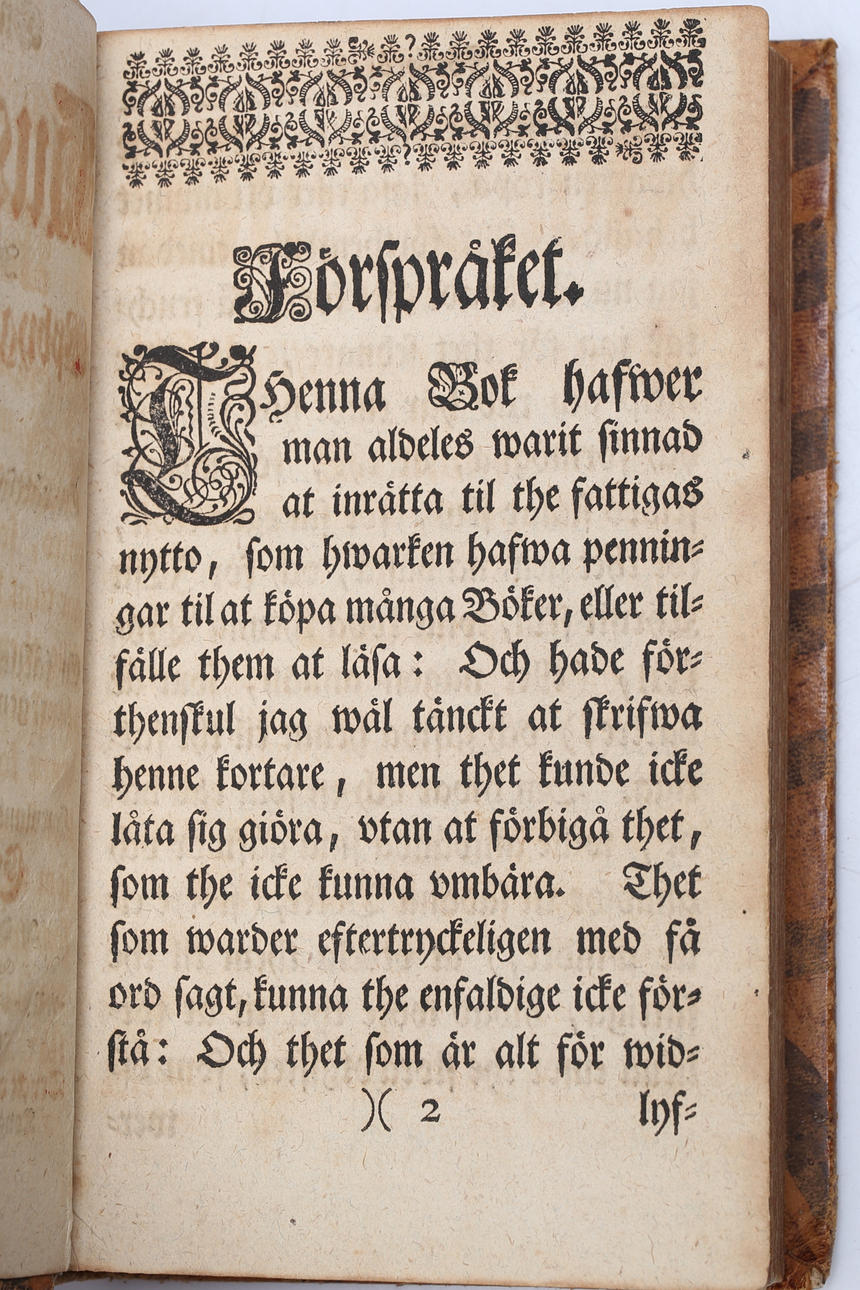 Förspråket.
THenna Bok hafwer
man aldeles warit sinnad
at inrätta til the fattigas
nytto, som hwarken hafwa pennin⸗
gar til at köpa många Böker, eller til⸗
fälle them at läsa: Och hade för⸗
thenskul jag wäl tänckt at skrifwa
henne kortare, men thet kunde icke
låta sig giöra, vtan at förbigå thet,
som the icke kunna vmbära. Thet
som warder eftertryckeligen med få
ord sagt, kunna the enfaldige icke för⸗
stå: Och thet som är alt för wid⸗
)( 2 lyf⸗